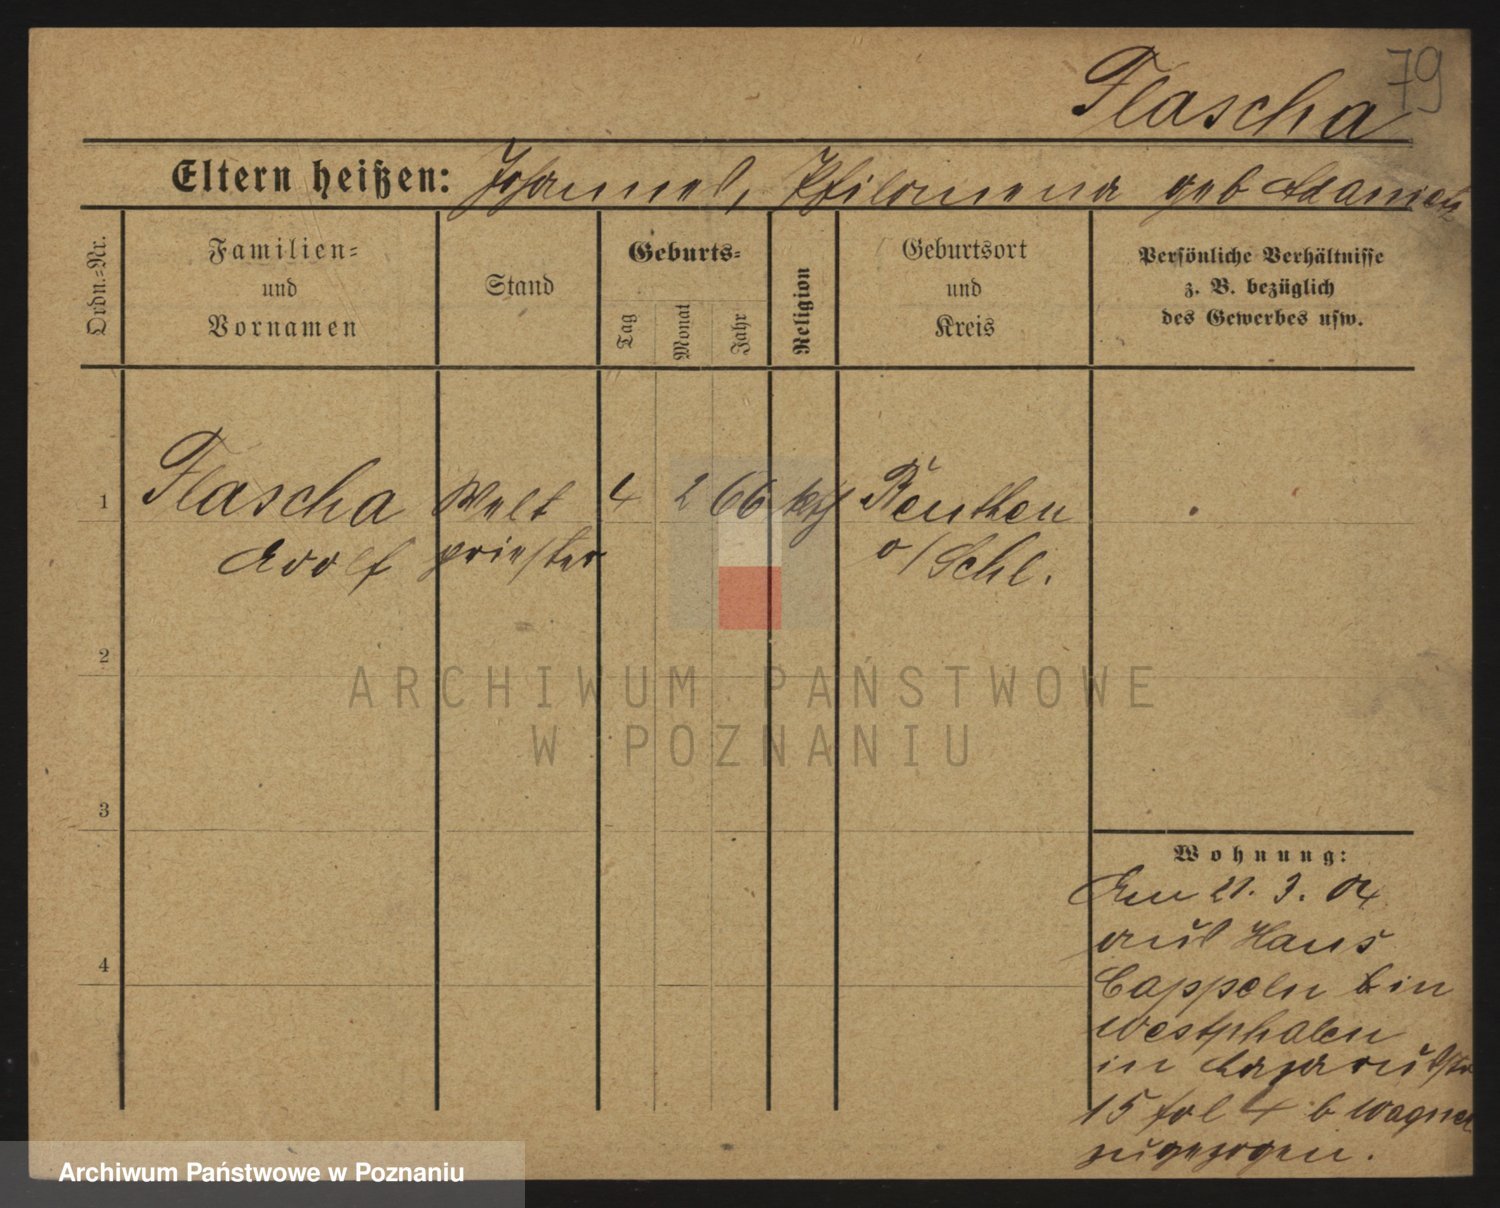 79
Flascha
Eltern heißen: Johannes, Philomena geb Adamietz
Ordn.=Nr.
Familien=
und
Vornamen
Stand
Geburts=
Tag
Monat
Jahr
Religion
Geburtsort
und
Kreis
Persönliche Verhältnisse
z. B. bezüglich
des Gewerbes usw.
1 Flascha Welt 4 2 66 kth Beuthen
Adolf priester o/Schl.
2
3
4
Wohnung:
Am 21. 3. 04
aus Haus
Cappeln in
Westphalen
in Lazarusstr
15 fol 4 b Wagner
zugezogen.
ARCHIWUM PAŃSTWOWE
W POZNANIU
Archiwum Państwowe w Poznaniu